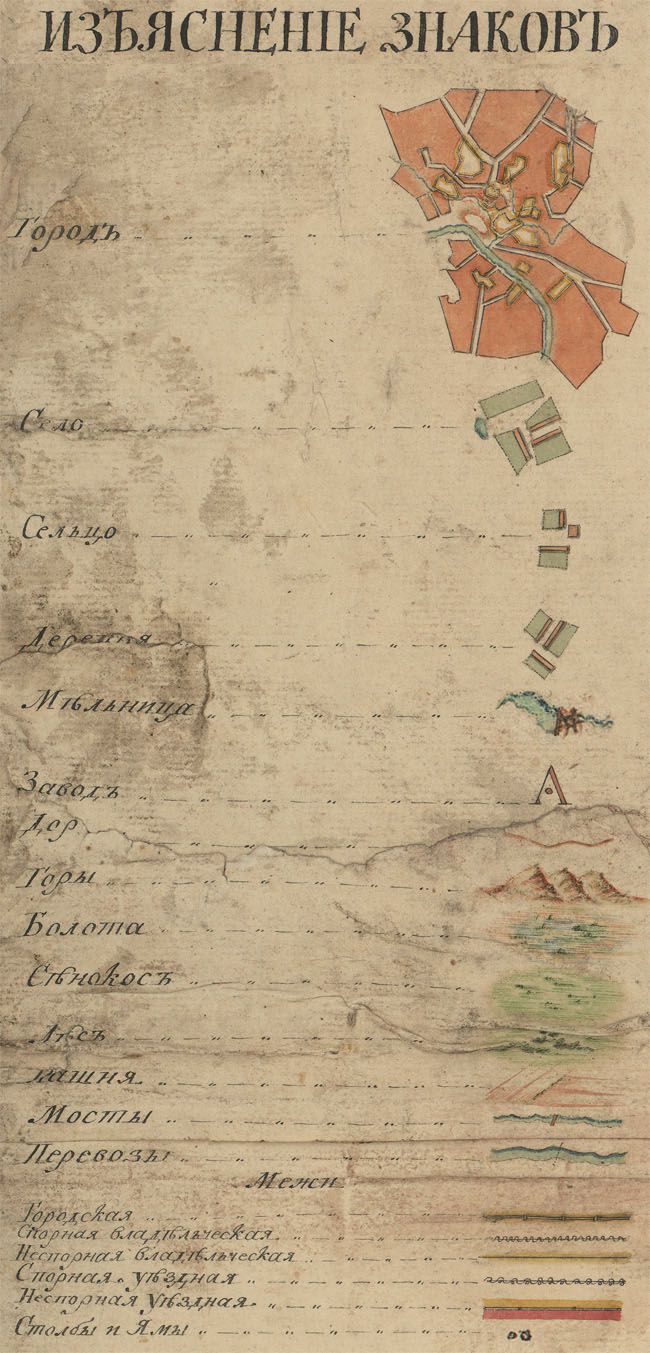 ИЗЪЯСНЕНІЕ ЗНАКОВЪ
Городъ
Село
Сельцо
Деревня
Мѣльница
Заводъ
Дор
Горы
Болота
Сѣнокосъ
Лѣсъ
пашня
Мосты
Перевозы
Межи
Городская
Спорная владѣльческая
Неспорная владѣльческая
Спорная уѣздная
Неспорная уѣздная
Столбы и Ямы